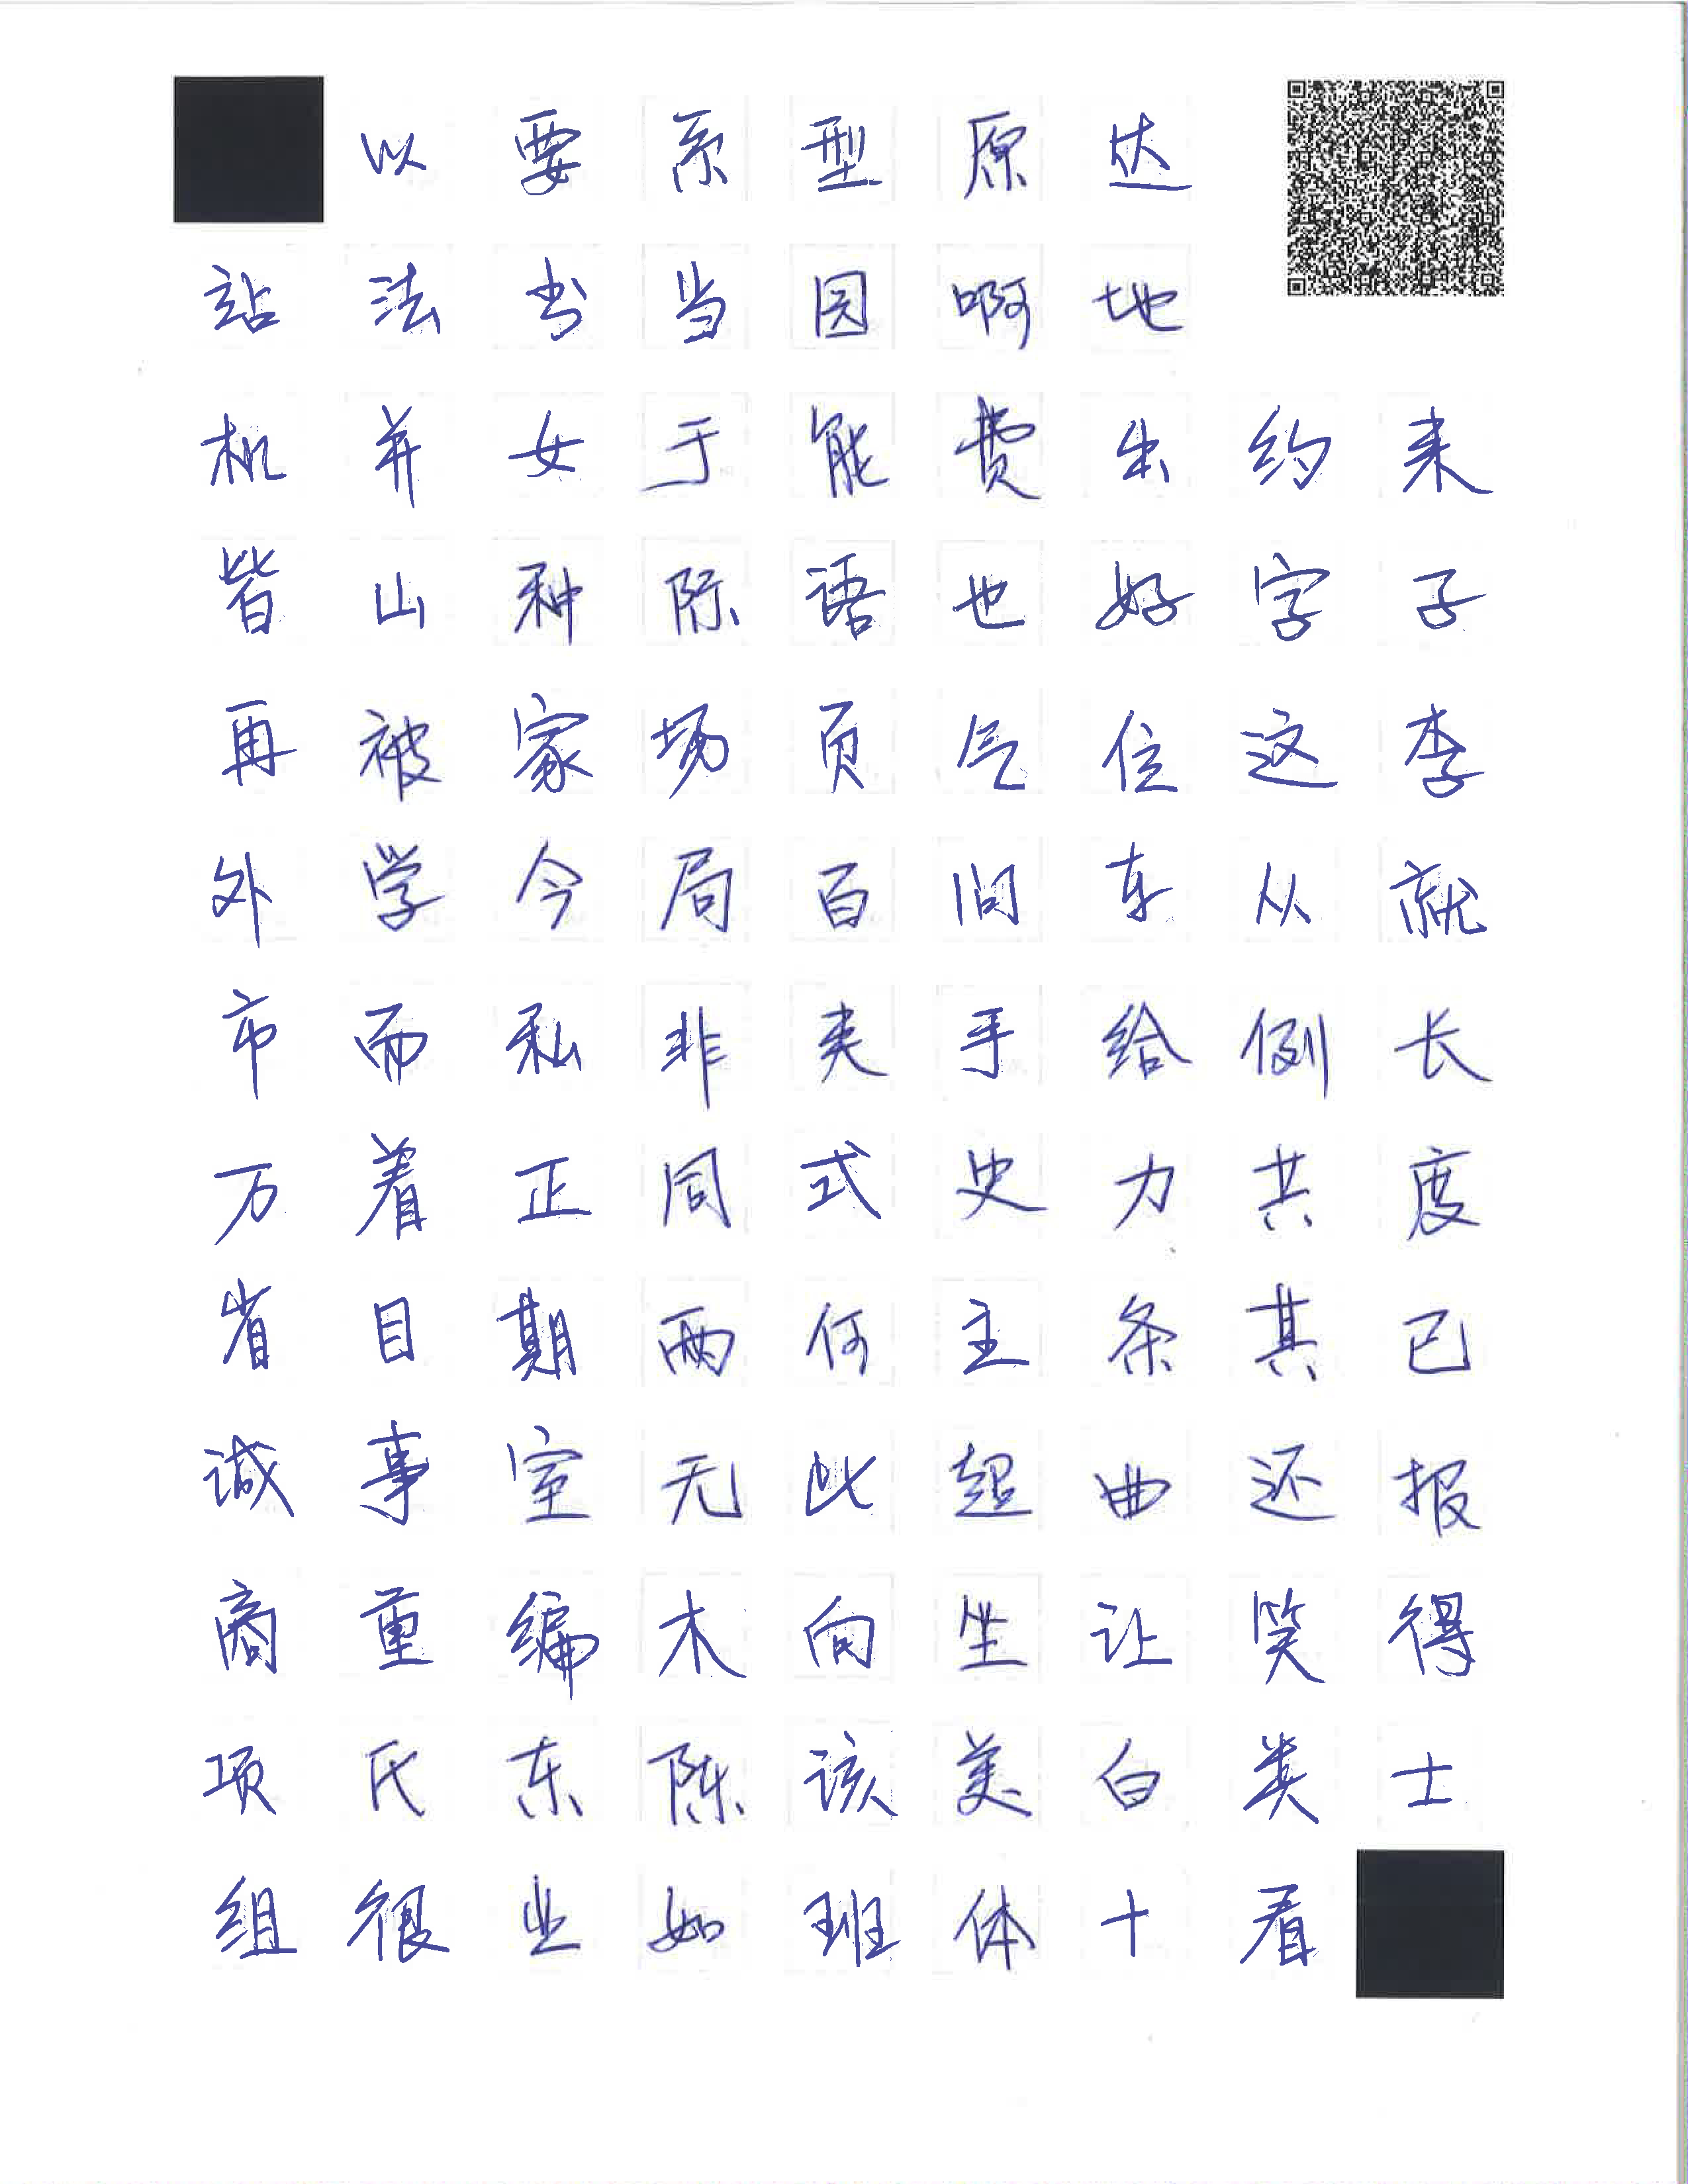 以要系型原达
站法书当园啊地
机并女于能费出约来
皆山种际语也好字子
再被家场页气位这李
外学今局百间车从就
市而私非夹手给例长
万着正同式史力共度
省目期两何主条其已
诚事室无此超曲还报
商重编木向坐让笑得
项氏东陈该美白类士
组很业如班体十看